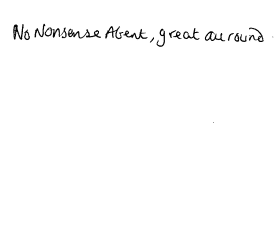 No Nonsense Agent, great all round